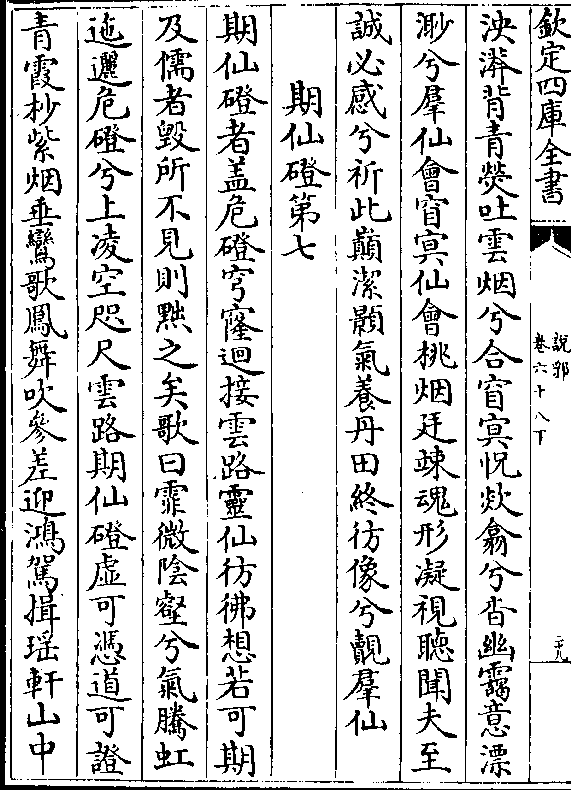 欽定四庫全書
說郛
卷六十八下
泱漭背青熒吐雲烟兮合窅冥怳欻翕兮沓幽靄意漂
渺兮羣仙會窅冥仙會桃烟廷竦魂形凝視聽聞夫至
誠必感兮祈此巔潔顥氣養丹田終彷像兮觀羣仙
期仙磴第七
期仙磴者盖危磴穹窿迴接雲路靈仙彷彿想若可期
及儒者毀所不見則黜之矣歌曰霏微陰壑兮氣騰虹
迤邐危磴兮上凌空咫尺雲路期仙磴虛可憑道可證
青霞杪紫烟垂鸞歌鳳舞吹參差迎鴻駕揖瑶軒山中